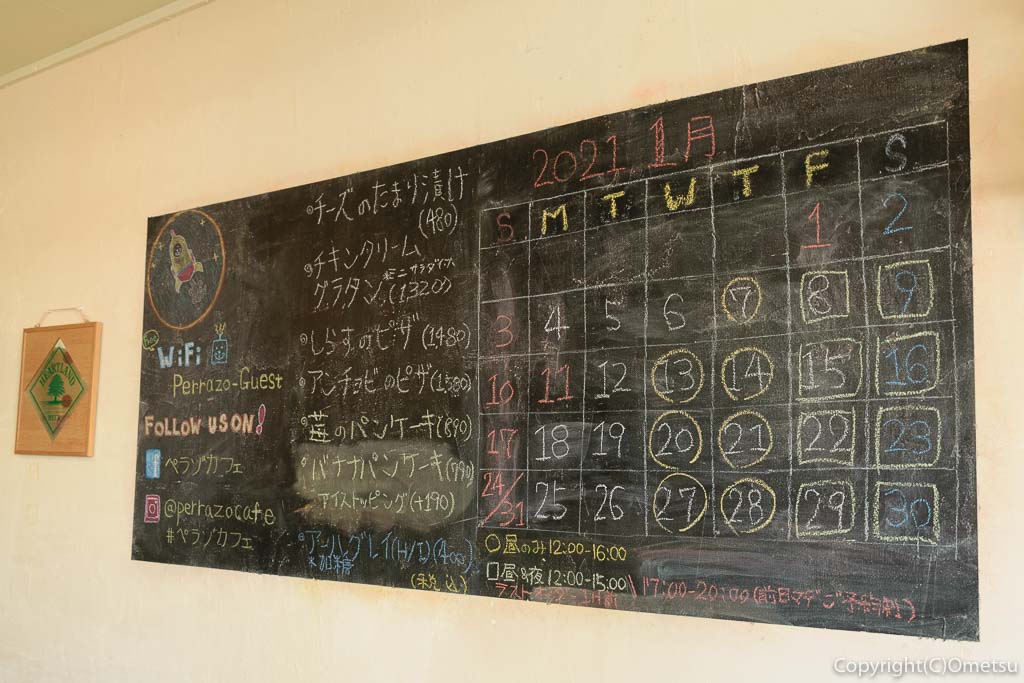 HEARTLAND
BEER
Free
WiFi
Perrazo-Guest
FOLLOW US ON!
f ペラゾカフェ
@perrazocafe
#ペラゾカフェ
チーズのたまり漬け
(480)
チキンクリーム
グラタン (1320)
しらすのピザ (1480)
アンチョビのピザ (1580)
苺のパンケーキ (890)
バナナパンケーキ (790)
アイストッピング (+190)
アールグレイ (H/I) (400)
*加糖
(税込)
2021. 1月
S M T W T F S
1 2
3 4 5 6 7 8 9
10 11 12 13 14 15 16
17 18 19 20 21 22 23
24/31 25 26 27 28 29 30
○昼のみ 12:00-16:00
□昼&夜 12:00-15:00 \ 17:00-20:00 (前日マデニご予約制)
ラストオーダー 1H前
Copyright(C)Ometsu